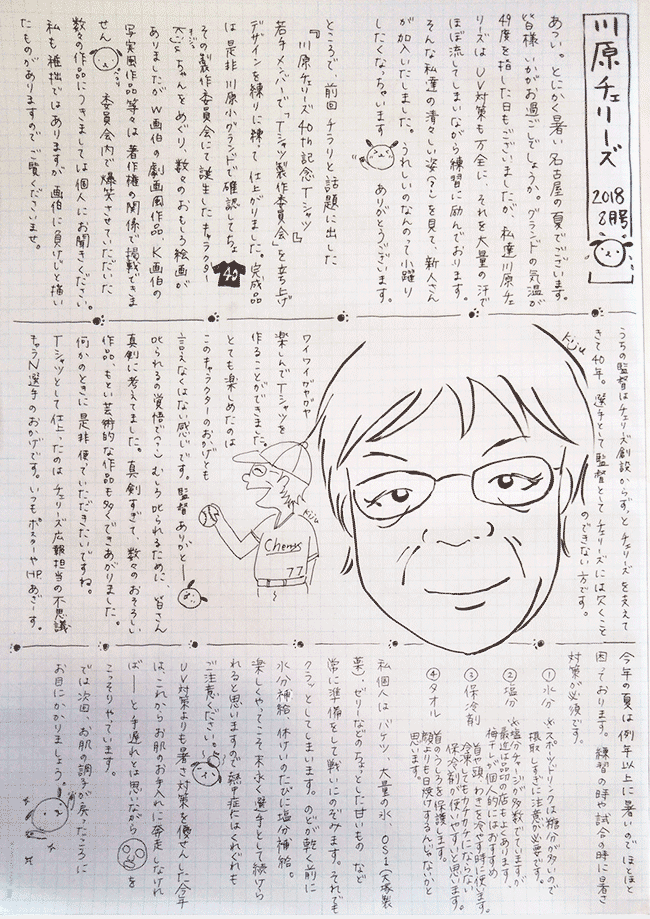 川原チェリーズ 2018 8月号
あつい。とにかく暑い名古屋の夏でございます。
皆様いかがお過ごしでしょうか。グランドの気温が
49度を指した日もございましたが、私達川原チェ
リーズはUV対策も万全に、それを大量の汗で
ほぼ流してしまいながら練習に励んでおります。
そんな私達の清々しい姿(?)を見て、新人さん
が加入いたしました。うれしいのなんのって小躍り
したくなっちゃいます ありがとうございます。
ところで前回チラリと話題に出した
『川原チェリーズ40th記念Tシャツ』
若手メンバーで「Tシャツ製作委員会」を立ち上げ
デザインを練りに練って仕上がりました。完成品
は是非川原小グランドで確認してちょ 40
その製作委員会にて誕生したキャラクター
ちゃんをめぐり、数々のおもしろ絵画が
ありましたがW画伯の劇画風作品 K画伯の
写実風作品等々は著作権の関係で掲載できま
せん 委員会内で爆笑させていただいた
数々の作品につきましては個人にお聞きください。
私も稚拙ではありますが画伯に負けじと描い
たものがありますのでご覧くださいませ。
うちの監督はチェリーズ創設からずっとチェリーズを支えて
きて40年。選手として監督としてチェリーズには欠くこと
のできない方です。
Kiju
ワイワイガヤガヤ
楽しんでTシャツを
作ることができました。
とても楽しめたのは
このキャラクターのおかげとも
言えなくはない感じです。監督ありがとー
叱られるの覚悟で(?)むしろ叱られるために、皆さん
真剣に考えてました。真剣すぎて、数々のおそろしい
作品、もとい芸術的な作品も多くできあがりました。
何かのときに是非使っていただきたいですね。
Tシャツとして仕上ったのはチェリーズ広報担当の不思議
キャラN選手のおかげです。いつもポスターやHP、あざーす。
Kiju
Cherrys
77
今年の夏は例年以上に暑いのでほとほと
困っております。練習の時や試合の時に暑さ
対策が必須です。
①水分 ※スポーツドリンクは糖分が多いので
摂取しすぎに注意が必要です。
②塩分 ※塩分チャージが多数でていますが
最近は品切の店も多くあります。
梅干しが個人的にはおすすめ
③保冷剤 首や頭、わきを冷やす時に使います。
冷凍してもカチカチにならない
保冷剤が使いやすいと思います。
④タオル 首のうしろを保護します。
顔よりも日焼けするんじゃないかと
思います。
私個人はバケツ、大量の氷、OS1(大塚製
薬)ゼリーなどのちょっとした甘いもの など
常に準備をして戦いにのぞみます。それでも
クラッとしてしまいます。のどが乾く前に
水分補給、休けいのたびに塩分補給。
楽しくやってこそ末永く選手として続けら
れると思いますので熱中症にはくれぐれも
ご注意ください。
UV対策よりも暑さ対策を優せんした今年
は、これからお肌のお手入れに奔走しなけれ
ば――と手遅れとは思いながら を
こっそりやっています。
では次回、お肌の調子が戻ったころに
お目にかかりましょう。